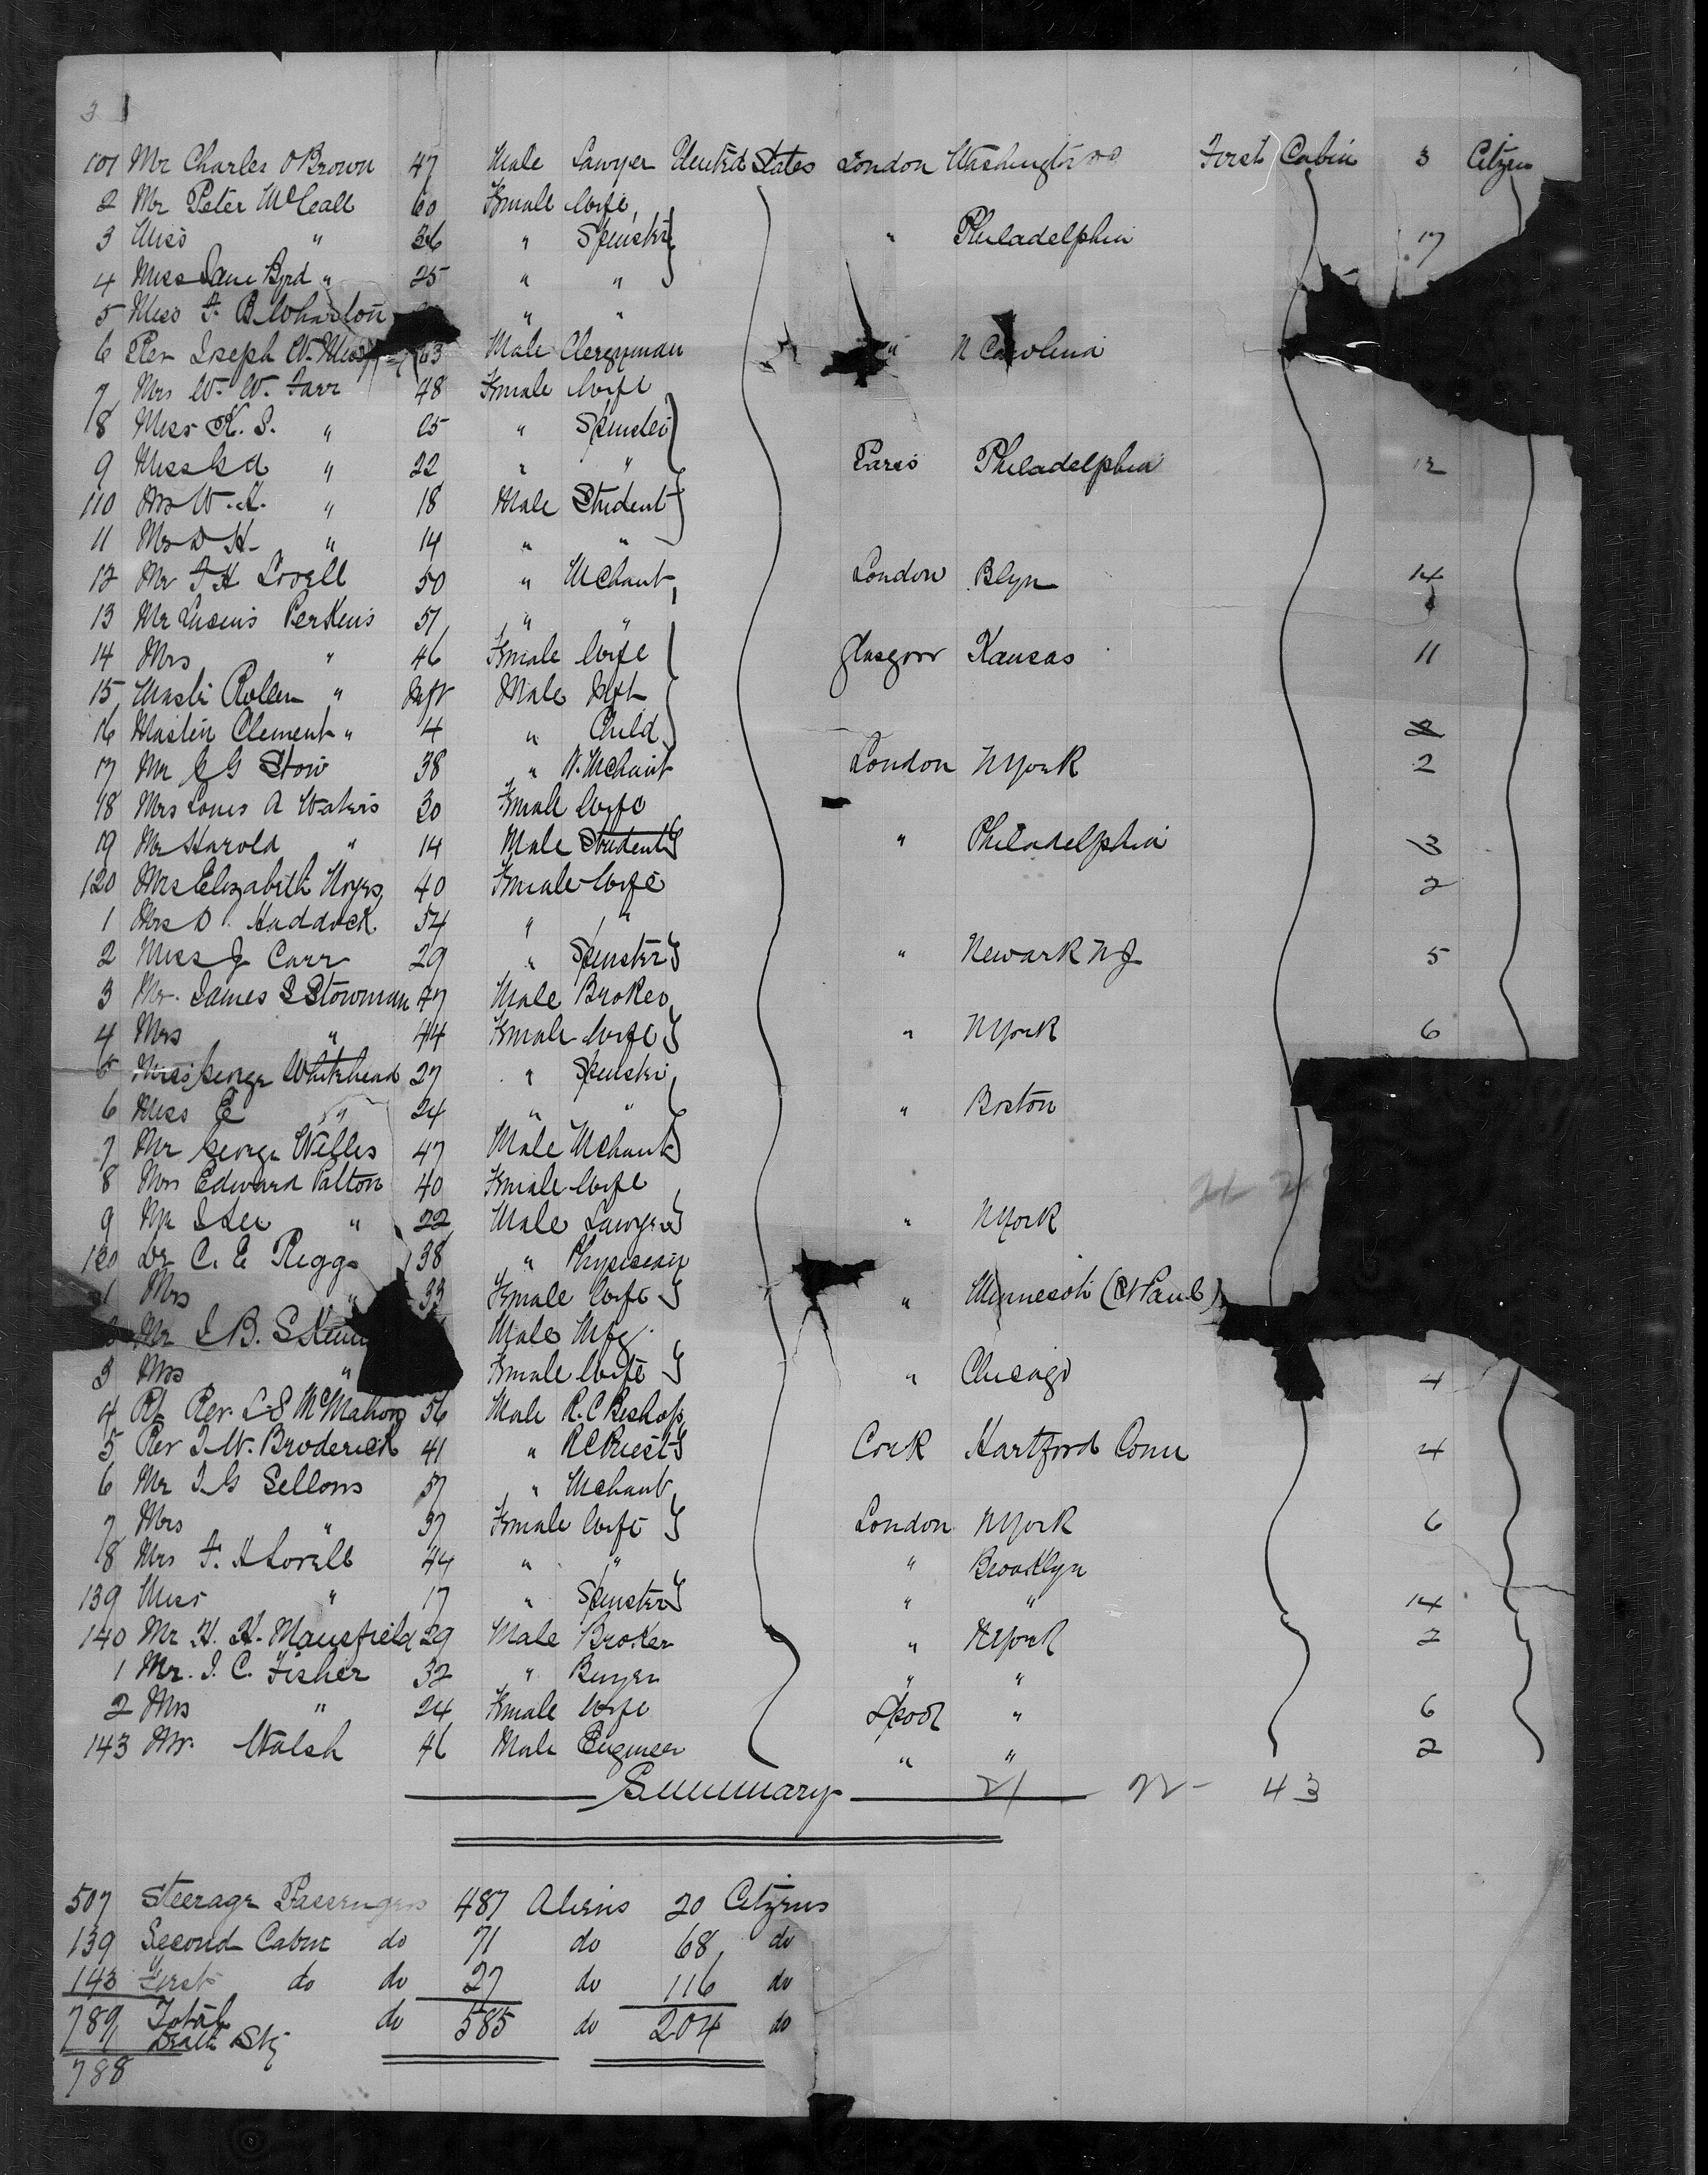 3
101 Mr Charles O Brown 47 Male Lawyer United States London Washington First Cabin 3 Citzen
2 Mr Peter McCall 60 Female Wife
3 Miss " 36 " Spinster " Philadelphia 17
4 Miss Jane Byrd " 25 " "
5 Miss F. B. Wharton " "
6 Rev Joseph W. 63 Male Clergyman " N Carolina
7 Mrs W. W. Farr 48 Female Wife
8 Miss K. S. " 25 " Spinster
9 Miss " 22 " " Paris Philadelphia 12
110 Mr W. " 18 Male Student
11 Mr D H " 14 " "
12 Mr F H Lovell 50 " Mchant London Blyn 14
13 Mr Lucius Perkins 51 " "
14 Mrs " 46 Female Wife Glasgow Kansas 11
15 Mastr Rollin " Inft Male Inft
16 Mastr Clement " 4 " Child 2
17 Mr G Stow 38 " W. Mchant London NYork 2
18 Mrs Louis A Waters 30 Female Wife
19 Mr Harold " 14 Male Student " Philadelphia 3
120 Mrs Elizabeth 40 Female Wife 2
1 Mrs D Haddock 54 " "
2 Miss J Carr 29 " Spinster " Newark NJ 5
3 Mr. James S Stowman 47 Male Broker
4 Mrs " 44 Female Wife " NYork 6
5 Miss George Whitehead 27 " Spinster
6 Miss E " 24 " " " Boston
7 Mr George Willis 47 Male Mchant
8 Mrs Edward Patton 40 Female Wife
9 Mr Lee " 22 Male Lawyer " NYork
130 Dr C. E Riggs 38 " Physician
1 Mrs " 33 Female Wife " Minnesota (St Paul)
Mr J B. Male Mfg.
3 Mrs " Female Wife " Chicago 4
4 Rt Rev. L S McMahon 56 Male R. C Bishop
5 Rev J. W. Broderick 41 " R C Priest Cork Hartford Conn 4
6 Mr J G Sellons 57 " Mchant
7 Mrs " 37 Female Wife London NYork 6
8 Mrs F. H Lovell 44 " " " Brooklyn
139 Miss " 17 " Spinster " " 14
140 Mr H. H. Mansfield 29 Male Broker " NYork 2
1 Mr. J. C. Fisher 32 " Buyer " "
2 Mrs " 24 Female Wife Lpool " 6
143 Mr. Walsh 46 Male Engineer " " 2
Summary 21 22 - 43
507 Steerage Passengers 487 Aliens 20 Citzens
139 Second Cabin do 71 do 68 do
143 First do do 27 do 116 do
789 Total do 585 do 204 do
Death Stg
788